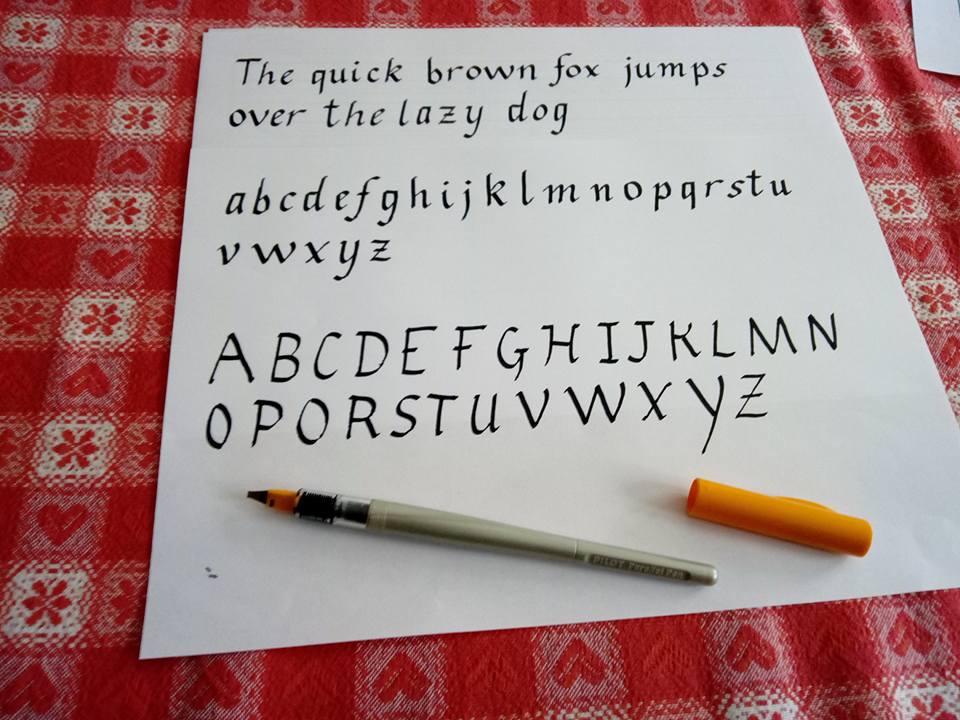 The quick brown fox jumps
over the lazy dog
a b c d e f g h i j k l m n o p q r s t u
v w x y z
A B C D E F G H I J K L M N
O P O R S T U V W X Y Z
PILOT Parallel Pen